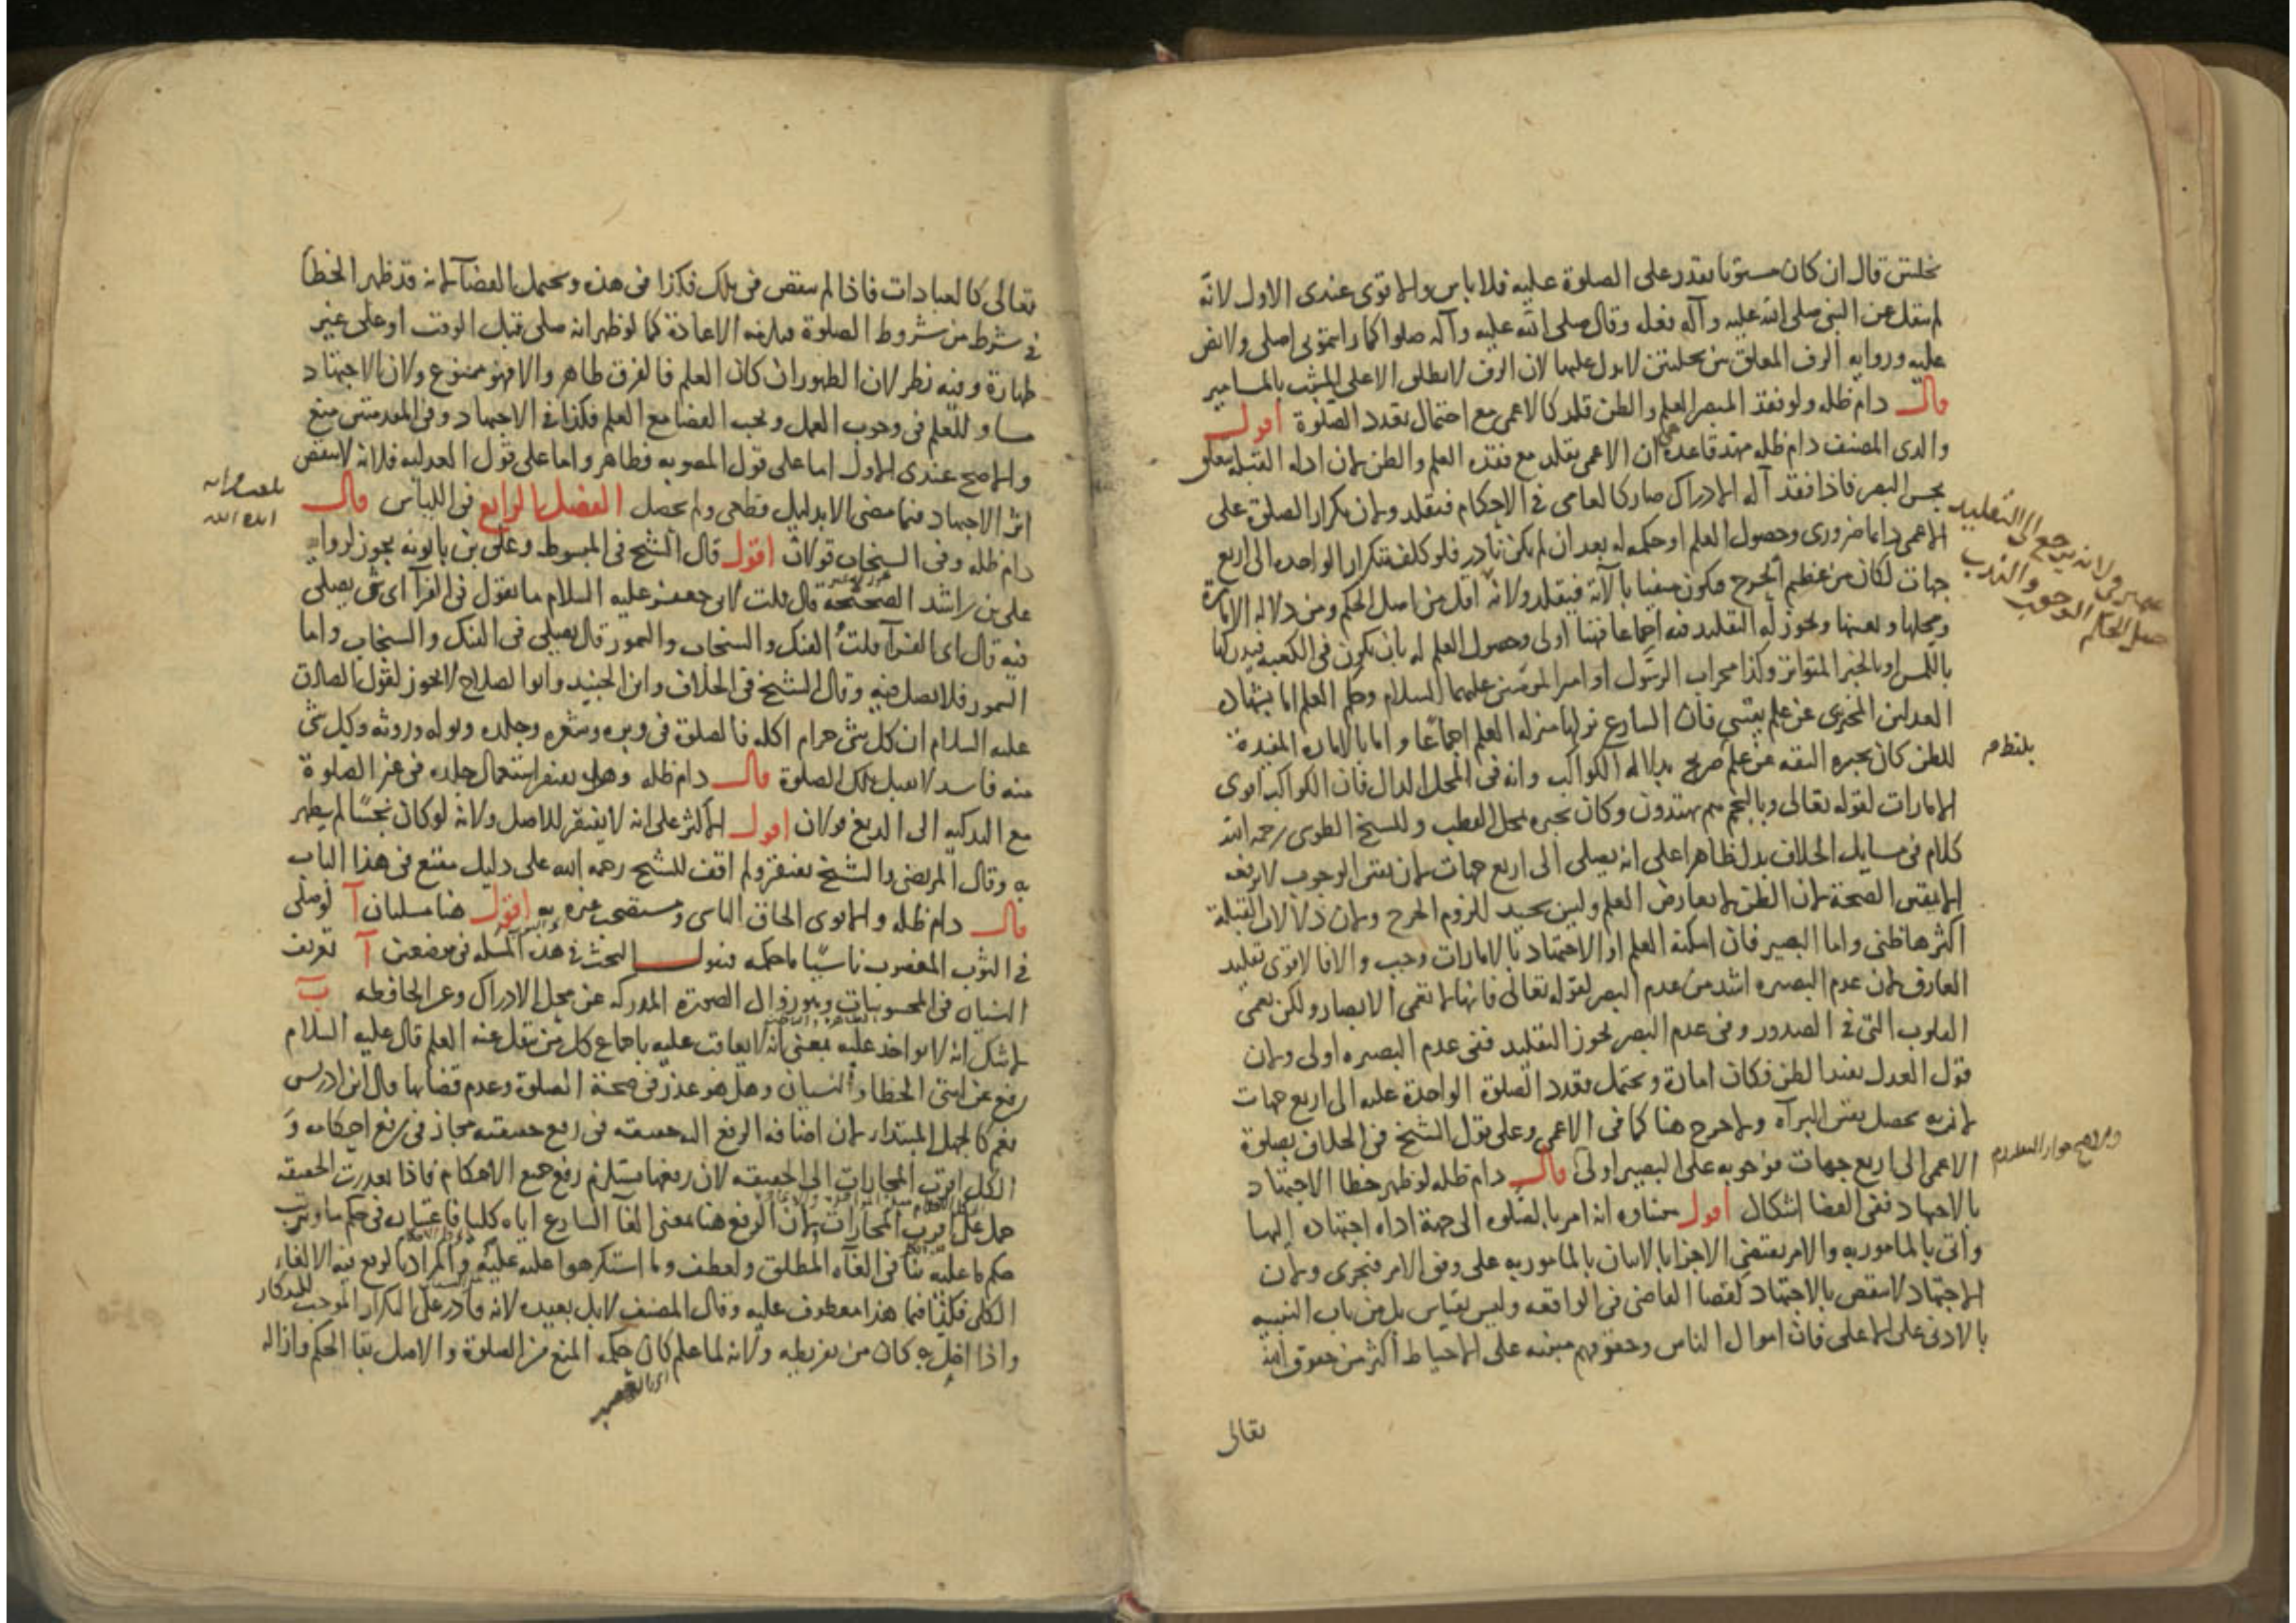 نخلتين قال ان كان مستويا يقدر على الصلوة عليه فلا باس والاقوى عندى الاول لانه
لم ينقل عن النبى صلى الله عليه وآله فعله وقال صلى الله عليه وآله صلوا كما رايتمونى اصلى ولا نص
عليه ورواية الرف المعلق بين نخلتين لا يدل عليها لان الرف لا يطلق الا على المثبت بالمسامير
قال دام ظله ولو فقد المبصر العلم والظن قلد كالاعمى مع احتمال تعدد الصلوة اقول
والدى المصنف دام ظله مهد قاعدة هى ان الاعمى يقلد مع فقده العلم والظن لان ادلة القبلة يتعلق
بحس البصر فاذا فقد آلة الادراك صار كالعامى فى الاحكام فيقلد ولان تكرار الصلوة على
الاعمى دايما ضرورى وحصول العلم او حكمه له بعد ان لم يكن نادر فلو كلف بتكرار الواحدة الى اربع
جهات لكان من عظيم الحرج فيكون منفيا بالآية فيقلد ولانه اقل من اصل الحكم ومن دلالة الامارة
ومحلها وبعينها ويجوز له التقليد فيه اجماعا فهنا اولى وحصول العلم له بان يكون فى الكعبة فيدركها
باللمس او بالخبر المتواتر وكذا محراب الرسول او امير المومنين عليهما السلام وحكم العلم اما بشهادة
العدلين المخبرى عن علم يقينى فان الشارع نزلها منزلة العلم اجماعا واما بالامارة المفيدة
للظن كان يخبره الثقة عن علم صريح بدلالة الكواكب وانه فى المحل الدال فان الكواكب اقوى
الامارات لقوله تعالى وبالنجم هم يهتدون وكان يخبره بمحل القطب وللشيخ الطوسى رحمه الله
كلام فى مسايل الخلاف يدل ظاهرا على انه يصلى الى اربع جهات لان يقين الوجوب لا يرفعه
الا يقين الصحة لان الظن لا يعارض العلم وليس بجيد للزوم الحرج ولان دلالات القبلة
اكثرها ظنى واما البصير فان امكنه العلم او الاجتهاد بالامارات وجب والا فالاقوى تقليد
العارف لان عدم البصيرة اشد من عدم البصر لقوله تعالى فانها لا تعمى الابصار ولكن تعمى
القلوب التى فى الصدور وفى عدم البصر يجوز التقليد ففى عدم البصيرة اولى ولان
قول العدل يفيد الظن فكان امارة ويحتمل تعدد الصلوة الواحدة عليه الى اربع جهات
لان به يحصل يقين البرآة ولا حرج هنا كما فى الاعمى وعلى قول الشيخ فى الخلاف بصلوة
الاعمى الى اربع جهات فوجوبه على البصير اولى قال دام ظله لو ظهر خطا الاجتهاد
بالاجتهاد ففى القضا اشكال اقول منشاوه انه امر بالصلوة الى جهة اداه اجتهاده اليها
واتى بالمامور به والامر يقتضى الاجزا بالاتيان بالمامور به على وفق الامر فيجزى ولان
الاجتهاد لا ينقض بالاجتهاد كقضا القاضى فى الواقعة وليس بقياس بل من باب التنبيه
بالادنى على الاعلى فان اموال الناس وحقوقهم مبنية على الاحتياط اكثر من حقوق الله
تعالى
ولانه يرجع الى التقليد
حصل الحكم الوجوب والندب
بلغ نظره
تعالى كالعبادات فاذا لم ينقض فى تلك فكذا فى هذه ويحتمل القضآ لانه قد ظهر الخطا
فى شرط من شروط الصلوة فيلزمه الاعادة كما لو ظهر انه صلى قبل الوقت او على غير
طهارة وفيه نظر لان الظهور ان كان العلم فالفرق ظاهر والا فهو ممنوع ولان الاجتهاد
مساو للعلم فى وجوب العمل ويجب القضا مع العلم فكذا فى الاجتهاد وفى المقدمتين منع
والاصح عندى الاول اما على قول المصوبة فظاهر واما على قول العدلية فلانه لا ينقض
اثر الاجتهاد فيما مضى الا بدليل قطعى ولم يحصل الفصل الرابع فى اللباس قال
دام ظله وفى السنجاب قولان اقول قال الشيخ فى المبسوط وعلى بن بابويه يجوز لرواية
على بن راشد الصحيحة قال قلت لابى جعفر عليه السلام ما تقول فى الفرآ اى شى يصلى
فيه قال اى الفرآ قلت الفنك والسنجاب والسمور قال يصلى فى الفنك والسنجاب واما
السمور فلا يصل فيه وقال الشيخ فى الخلاف وابن الجنيد وابو الصلاح لا يجوز لقول الصادق
عليه السلام ان كل شى حرام اكله فالصلوة فى وبره وشعره وجلده وبوله وروثه وكل شى
منه فاسد لا يقبل تلك الصلوة قال دام ظله وهل يفتقر استعمال جلده فى غير الصلوة
مع التذكية الى الدبغ قولان اقول الاكثر على انه لا يفتقر للاصل ولانه لو كان نجسا لم يطهر
به وقال المرتضى والشيخ يفتقر ولم اقف للشيخ رحمه الله على دليل مقنع فى هذا الباب
قال دام ظله والاقوى الحاق الناسى ومستصحب غيره به اقول هنا مسلتان آ لو صلى
فى الثوب المغصوب ناسيا ما حكمه فنقول البحث فى هذه المسلة فى موضعين آ تعريف
النسيان فى المحسوسات وهو زوال الصورة المدركة عن محل الادراك وعن الحافظة ب
لا شك انه لا يواخذ عليه بمعنى انه لا يعاقب عليه باجماع كل من نقل عنه العلم قال عليه السلام
رفع عن امتى الخطا والنسيان وهل هو عذر فى صحة الصلوة وعدم قضايها قال ابن ادريس
نعم كالجهل المبتدا ولان اضافة الرفع اليه حقيقة فى رفع حقيقته مجاز فى رفع احكامه و
الكل اقرب المجازات الى الحقيقة لان رفعها يستلزم رفع جميع الاحكام فاذا تعذرت الحقيقة
حمل على اقرب المجازات لان الرفع هنا معنى الغآ الشارع اياه كليا فاعتباره فى حكم ما وترتب
حكم ما عليه ينافى الغآه المطلق ولعطف وما استكرهوا عليه عليه والمراد بالرفع فيه الالغاء
الكلى فكذا فيما هذا معطوف عليه وقال المصنف لا بل يعيد لانه قادر على التكرار الموجب للتذكار
واذا اخل به كان من تفريطه ولانه لما علم كان حكمه المنع من الصلوة والاصل بقا الحكم وازالة